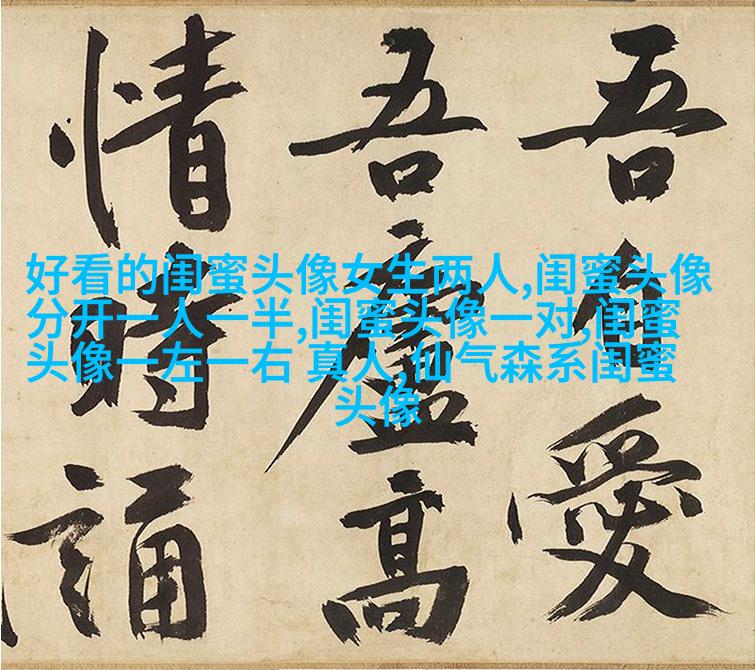 吾自愛
吾廬高
情時誦
好看的闺蜜头像女生两人,闺蜜头像
分开一人一半,闺蜜头像一对,闺蜜
头像一左一右 真人,仙气森系闺蜜
头像